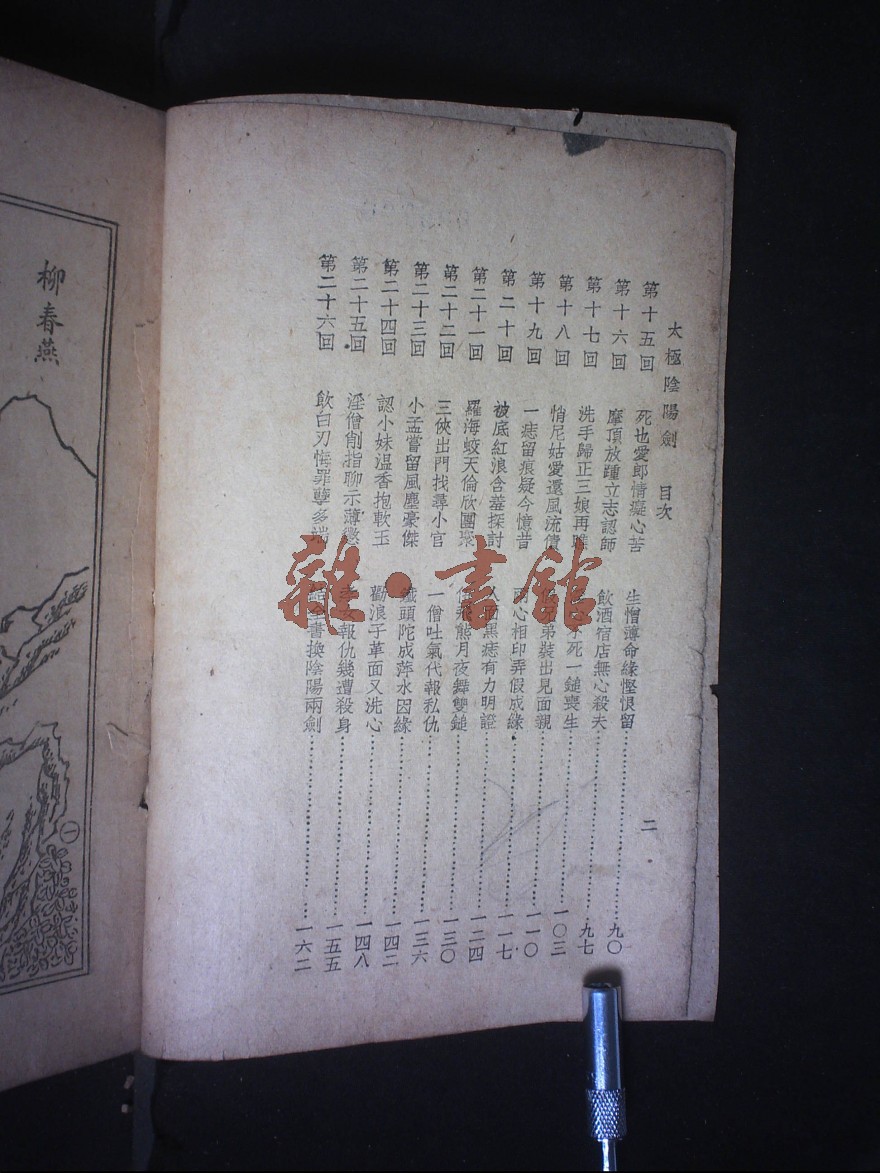 太極陰陽劍 目次 二
第十五回 死也愛郎情癡心苦 生憎薄命緣慳恨留 九〇
第十六回 摩頂放踵立志認師 飲酒宿店無心殺夫 九七
第十七回 洗手歸正三娘再 死一鎚喪生 一〇三
第十八回 悄尼姑愛還風流債 弟裝出見面親 一一〇
第十九回 一痣留痕疑今憶昔 心相印弄假成緣 一一七
第二十回 被底紅浪含羞探討 黑痣有力明證 一二四
第二十一回 羅海蛟天倫欣團聚 熊月夜舞雙鎚 一三〇
第二十二回 三俠出門找尋小官 一僧吐氣代報私仇 一三六
第二十三回 小孟嘗留風塵豪傑 鐵頭陀成萍水因緣 一四二
第二十四回 認小妹温香抱軟玉 勸浪子革面又洗心 一四八
第二十五回 淫僧削指聊示薄懲 女報仇幾遭殺身 一五五
第二十六回 飲白刃悔罪孽多端 書換陰陽兩劍 一六二
柳春燕
一
雜·書館